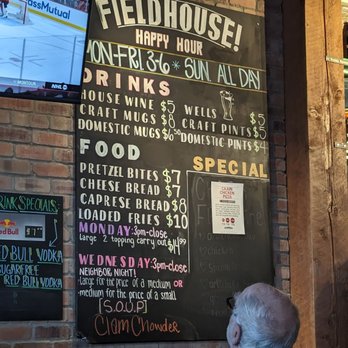 FIELDHOUSE!
HAPPY HOUR
MON-FRI 3-6 * SUN. ALL DAY
DRINKS
HOUSE WINE $5
CRAFT MUGS $8
DOMESTIC MUGS $6.50
WELLS $5
CRAFT PINTS $5
DOMESTIC PINTS $4
FOOD
PRETZEL BITES $7
CHEESE BREAD $7
CAPRESE BREAD $8
LOADED FRIES $10
MONDAY: 3pm-close
large 2 topping carry out $14.99
WEDNESDAY: 3pm-close
NEIGHBOR NIGHT!
-large for the price of a medium OR
-medium for the price of a small
[SOUP]
Clam Chowder
SPECIAL
CAJUN
CHICKEN
PIZZA
MassMutual
NHL
DRINK SPECIALS
Red Bull
RED BULL VODKA
SUGARFREE
RED BULL VODKA